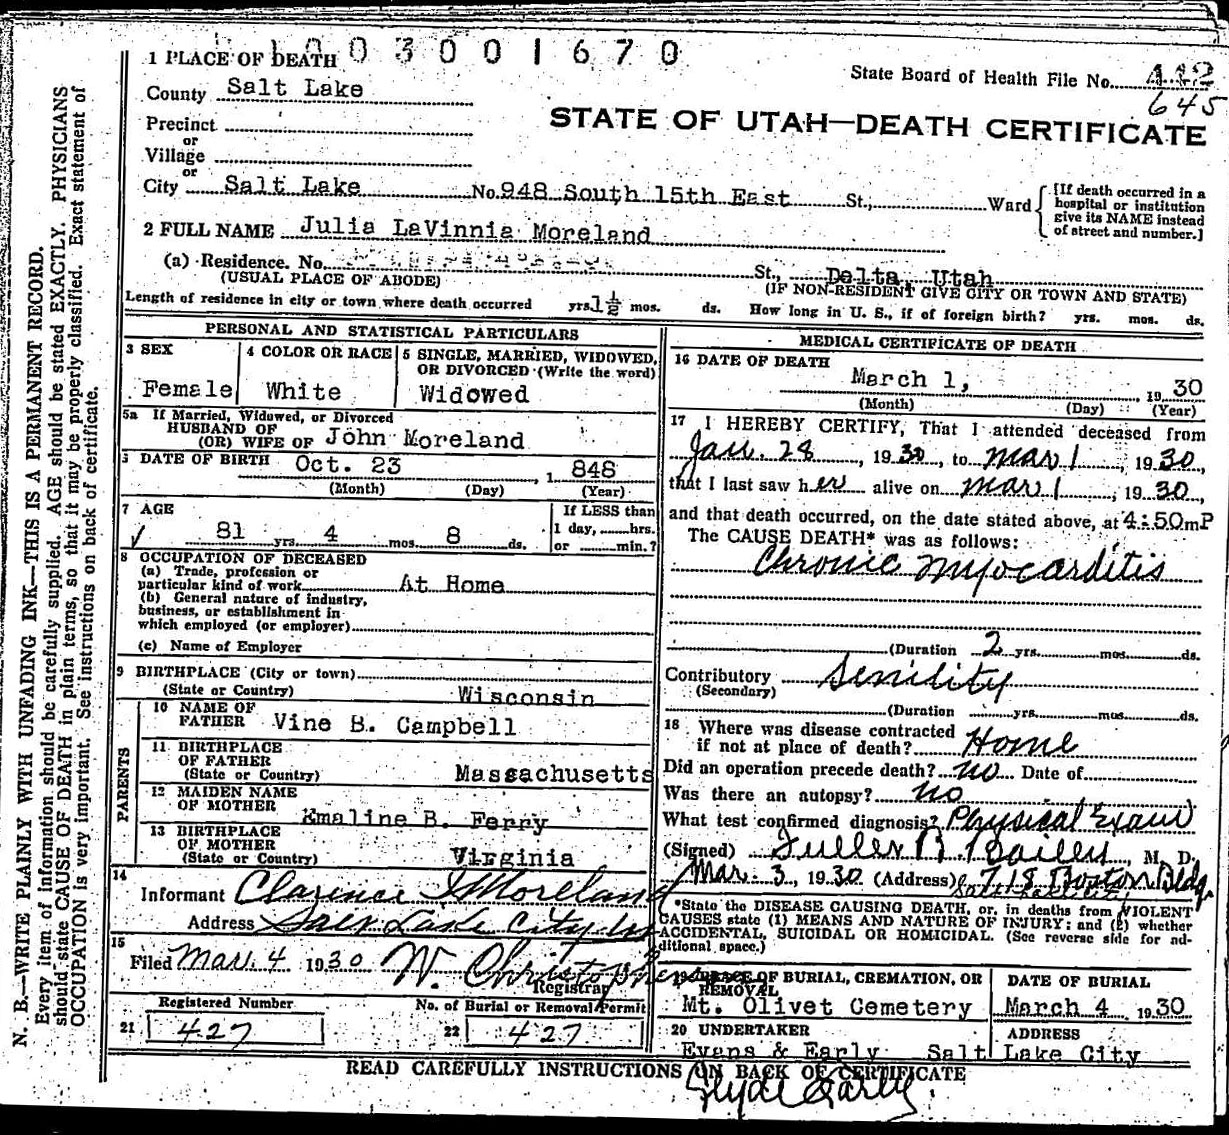 1003001670
1 PLACE OF DEATH
State Board of Health File No. 112
645
County Salt Lake
STATE OF UTAH—DEATH CERTIFICATE
Precinct
or
Village
or
City Salt Lake No. 948 South 15th East St., Ward
[If death occurred in a hospital or institution give its NAME instead of street and number.]
2 FULL NAME Julia LaVinnia Moreland
(a) Residence. No. St., Delta, Utah
(USUAL PLACE OF ABODE) (IF NON-RESIDENT GIVE CITY OR TOWN AND STATE)
Length of residence in city or town where death occurred yrs. 1½ mos. ds. How long in U. S., if of foreign birth? yrs. mos. ds.
PERSONAL AND STATISTICAL PARTICULARS
3 SEX
Female
4 COLOR OR RACE
White
5 SINGLE, MARRIED, WIDOWED,
OR DIVORCED (Write the word)
Widowed
5a If Married, Widowed, or Divorced
HUSBAND OF
(OR) WIFE OF John Moreland
DATE OF BIRTH Oct. 23, 1848
(Month) (Day) (Year)
7 AGE
81 yrs. 4 mos. 8 ds.
If LESS than
1 day, hrs.
or min.?
8 OCCUPATION OF DECEASED
(a) Trade, profession or
particular kind of work At Home
(b) General nature of industry,
business, or establishment in
which employed (or employer)
(c) Name of Employer
9 BIRTHPLACE (City or town)
(State or Country) Wisconsin
PARENTS
10 NAME OF
FATHER Vine B. Campbell
11 BIRTHPLACE
OF FATHER
(State or Country) Massachusetts
12 MAIDEN NAME
OF MOTHER Emaline B. Ferry
13 BIRTHPLACE
OF MOTHER
(State or Country) Virginia
14
Informant Clarence Moreland
Address Salt Lake City
15
Filed Mar. 4 1930 W. Christophers
Registrar
Registered Number
21 427
No. of Burial or Removal Permit
22 427
MEDICAL CERTIFICATE OF DEATH
16 DATE OF DEATH
March 1, 1930
(Month) (Day) (Year)
17 I HEREBY CERTIFY, That I attended deceased from
Jan. 28, 1930, to Mar 1, 1930,
that I last saw her alive on Mar 1, 1930,
and that death occurred, on the date stated above, at 4:50 m P
The CAUSE DEATH* was as follows:
Chronic Myocarditis
(Duration 2 yrs. mos. ds.
Contributory Senility
(Secondary)
(Duration yrs. mos. ds.
18 Where was disease contracted
if not at place of death? Home
Did an operation precede death? no Date of
Was there an autopsy? no
What test confirmed diagnosis? Physical Exam
(Signed) Fuller B. Bailey, M. D.
Mar. 3, 1930 (Address) 718 Boston Bldg.
*State the DISEASE CAUSING DEATH, or, in deaths from VIOLENT
CAUSES state (1) MEANS AND NATURE OF INJURY; and (2) whether
ACCIDENTAL, SUICIDAL OR HOMICIDAL. (See reverse side for ad-
ditional space.)
19 PLACE OF BURIAL, CREMATION, OR
REMOVAL
Mt. Olivet Cemetery
DATE OF BURIAL
March 4, 1930
20 UNDERTAKER
Evans & Early
ADDRESS
Salt Lake City
READ CAREFULLY INSTRUCTIONS ON BACK OF CERTIFICATE
Clyde Early
N. B.—WRITE PLAINLY WITH UNFADING INK—THIS IS A PERMANENT RECORD.
Every item of information should be carefully supplied. AGE should be stated EXACTLY. PHYSICIANS
should state CAUSE OF DEATH in plain terms, so that it may be properly classified. Exact statement of
OCCUPATION is very important. See instructions on back of certificate.